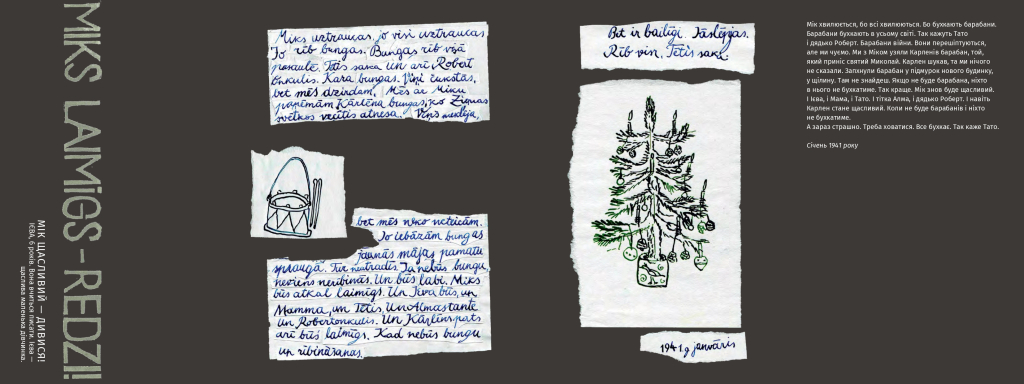 MIKS LAIMĪGS – REDZI!
МІК ЩАСЛИВИЙ — ДИВИСЯ!
ІЄВА, 6 років. Вона вчиться писати. Ієва —
щаслива маленька дівчинка.
Miks uztraucas, jo visi uztraucas.
Jo rīb bungas. Bungas rīb visā
pasaulē. Tētis saka. Un arī Robert
onkulis. Kara bungas. Viņi čukstas,
bet mēs dzirdam. Mēs ar Miku
paņēmām Kārlēna bungas, ko Ziemas
svētkos vecītis atnesa. Viņš meklēja,
bet mēs neko neteicām.
Jo iebāzām bungas
jaunās mājas pamatu
spraugā. Tur neatradīs. Ja nebūs bungu,
neviens neribinās. Un būs labi. Miks
būs atkal laimīgs. Un Ieva būs, un
Mamma, un Tētis. Un Almastante
un Robertonkulis. Un Kārlinš pats
arī būs laimīgs. Kad nebūs bungu
un rībināšanas.
Bet ir bailīgi. Jāslēpjas.
Rīb viss. Tētis saka.
1941.g janvāris
Мік хвилюється, бо всі хвилюються. Бо бухкають барабани.
Барабани бухкають в усьому світі. Так кажуть Тато
і дядько Роберт. Барабани війни. Вони перешіптуються,
але ми чуємо. Ми з Міком узяли Карленів барабан, той,
який приніс святий Миколай. Карлен шукав, та ми нічого
не сказали. Запхнули барабан у підмурок нового будинку,
у щілину. Там не знайдеш. Якщо не буде барабана, ніхто
в нього не бухкатиме. Так краще. Мік знов буде щасливий.
І Ієва, і Мама, і Тато. І тітка Алма, і дядько Роберт. І навіть
Карлен стане щасливий. Коли не буде барабанів і ніхто
не бухкатиме.
А зараз страшно. Треба ховатися. Все бухкає. Так каже Тато.
Січень 1941 року